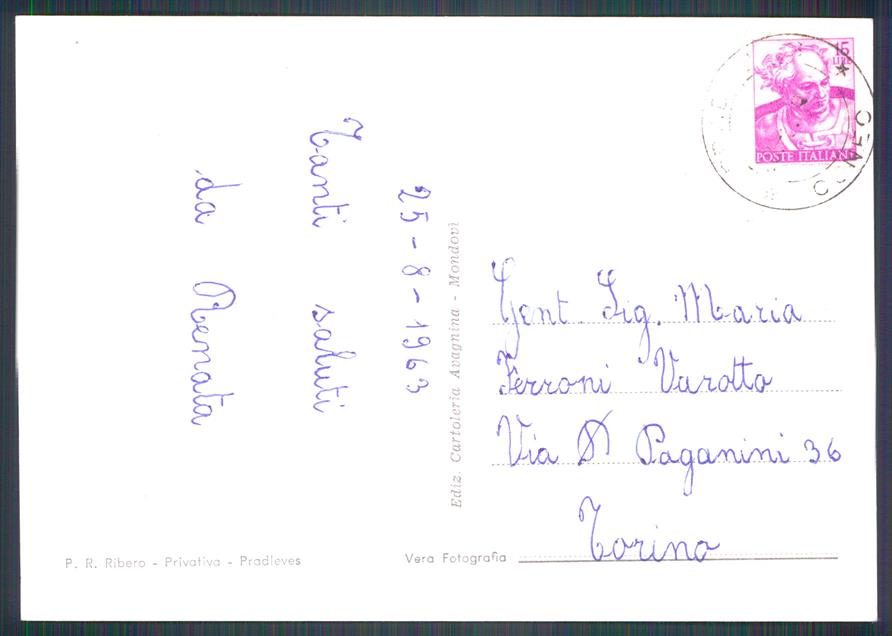 15
LIRE
POSTE ITALIANE
CUNEO
25-8-1963
Tanti saluti
da Renata
Ediz. Cartoleria Avagnina - Mondovì
Gent. Sig. Maria
Ferroni Varotto
Via N Paganini 36
Torino
P. R. Ribero - Privativa - Pradleves
Vera Fotografia